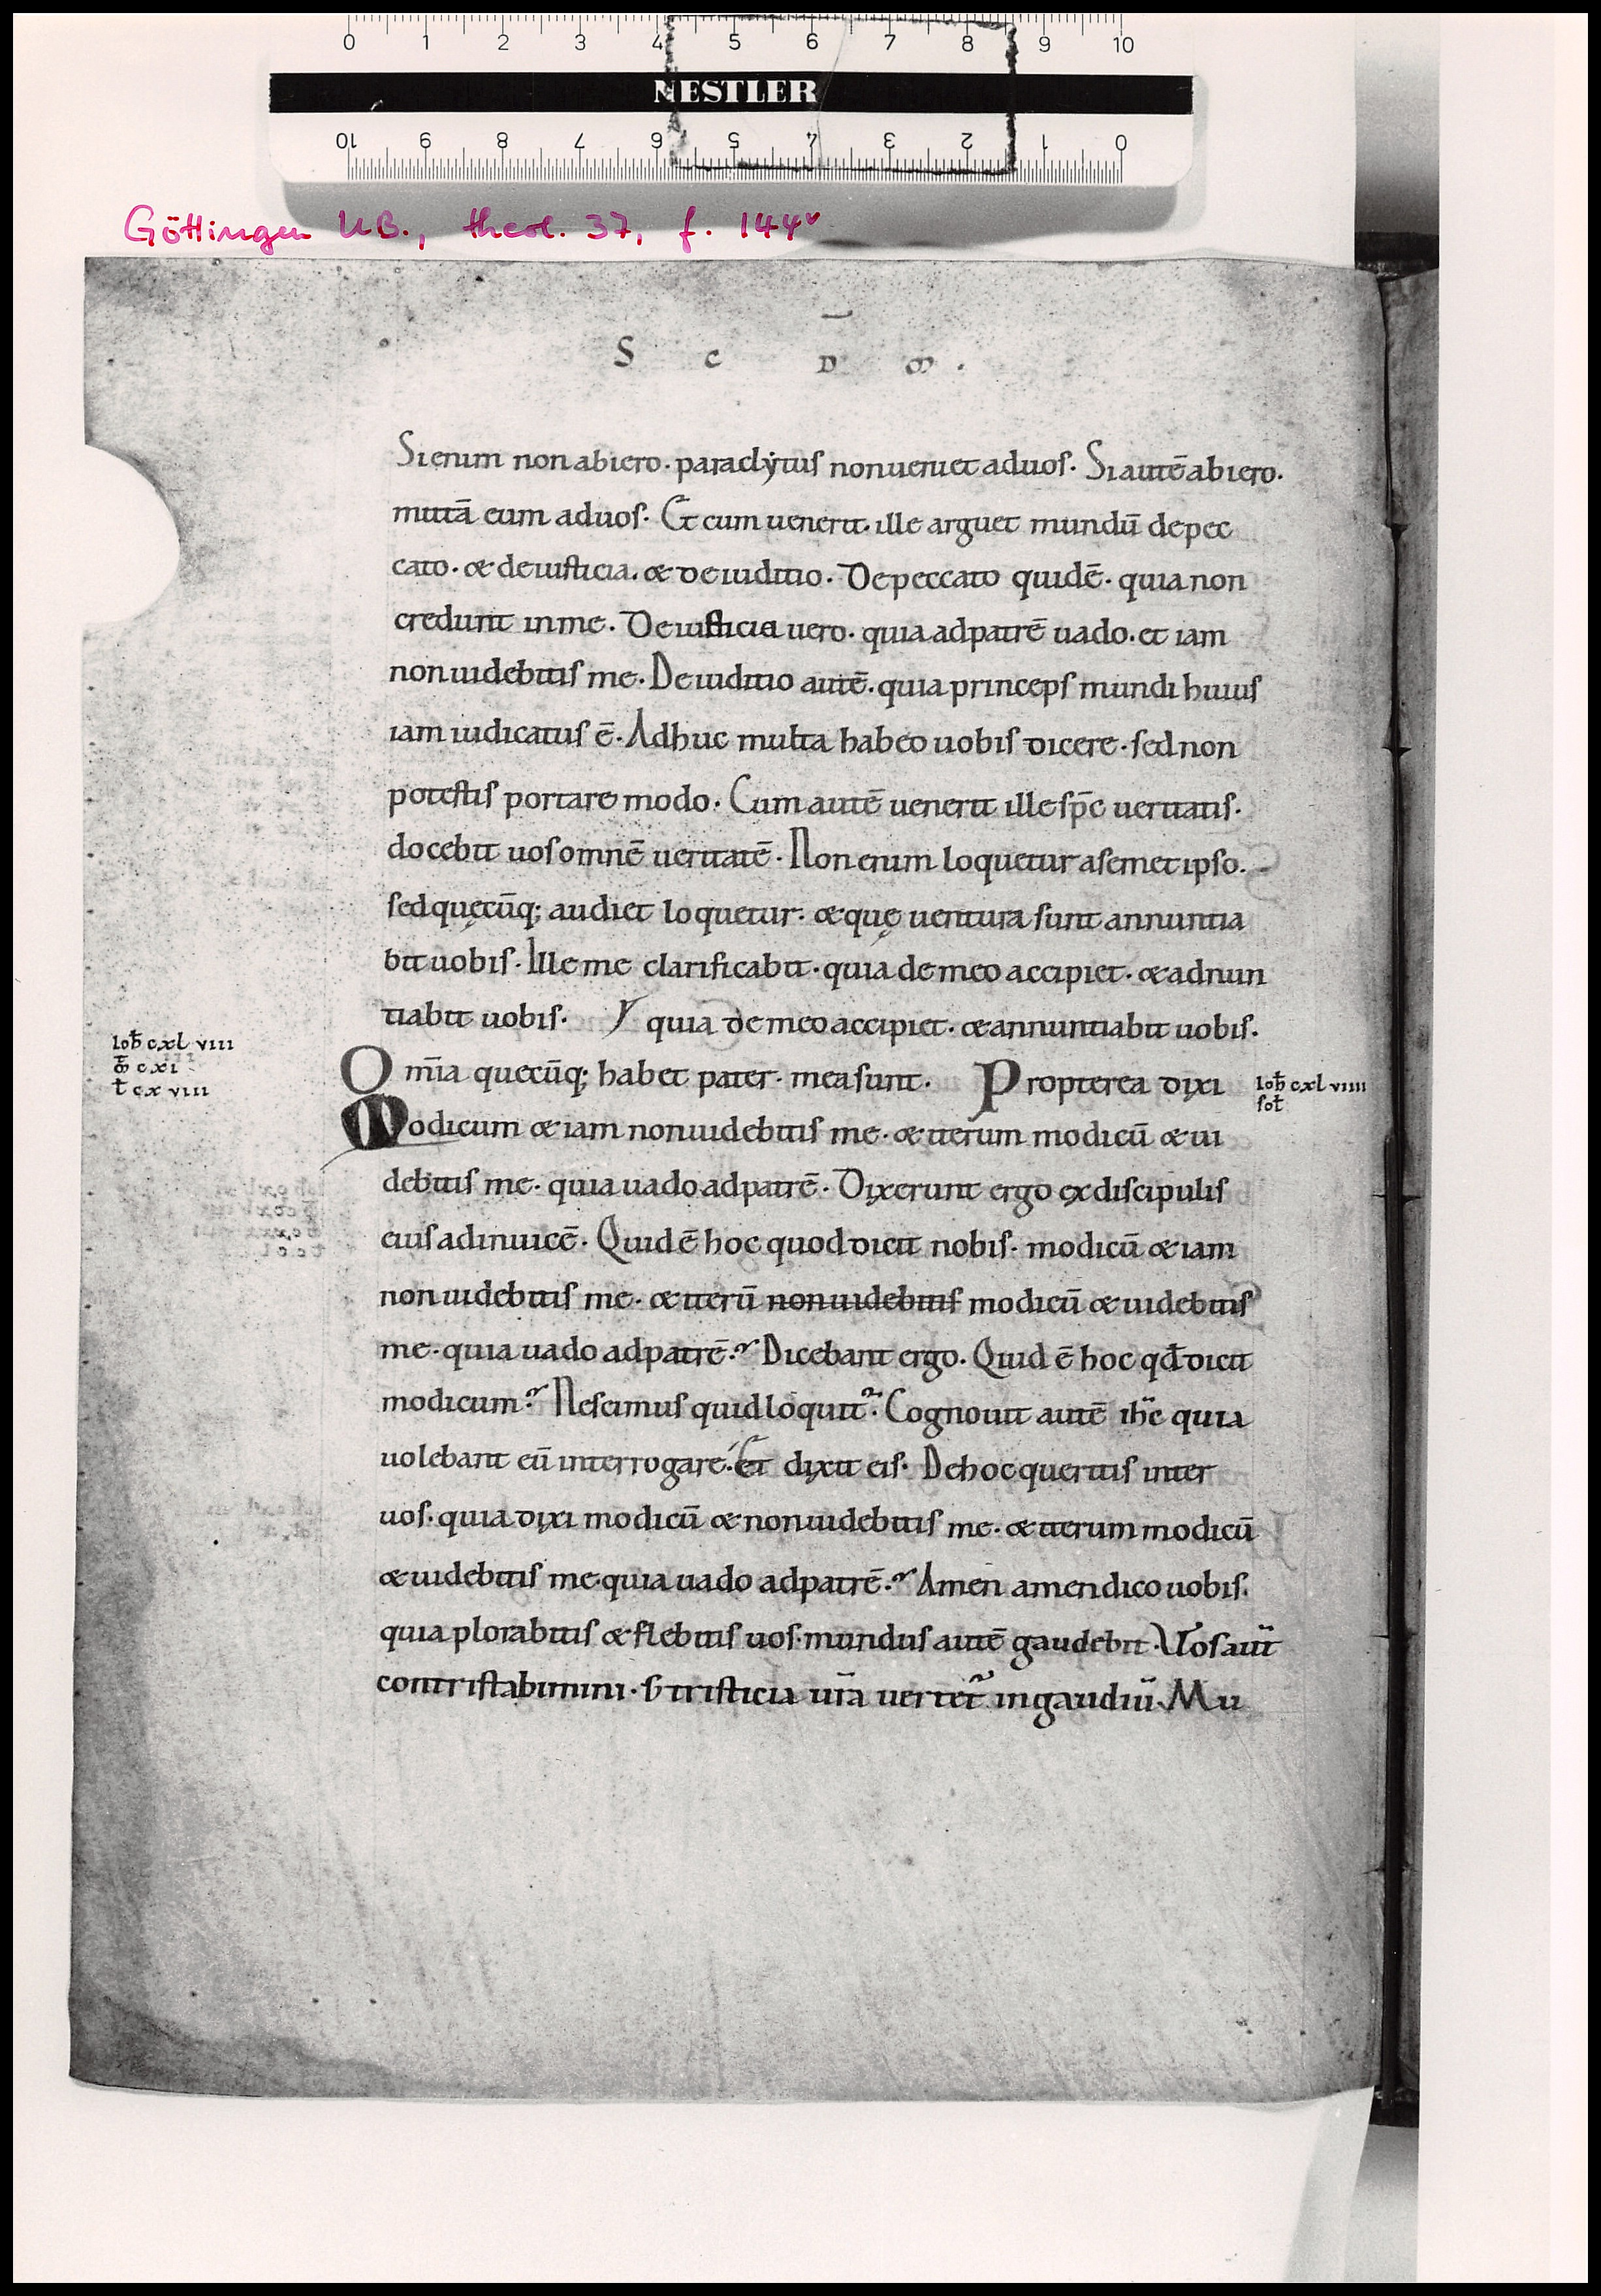 0 1 2 3 4 5 6 7 8 9 10
NESTLER
10 9 8 7 6 5 4 3 2 1 0
Göttingen UB., theol. 37, f. 144v
S c D̅ m .
Si enim non abiero. paraclẏtus non ueniet ad uos. Si autē abiero.
mittā eum ad uos. Et cum uenerit. ille arguet mundū de pec
cato. & de iusticia. & de iuditio. De peccato quidē. quia non
credunt in me. De iusticia uero. quia ad patrē uado. et iam
non uidebitis me. De iuditio autē. quia princeps mundi huius
iam iudicatus ē. Adhuc multa habeo uobis dicere. sed non
potestis portare modo. Cum autē uenerit ille sp̄c ueritatis.
docebit uos omnē ueritatē. Non enim loquetur a semet ipso.
sed quęcūq; audiet loquetur. & quę uentura sunt annuntia
bit uobis. Ille me clarificabit. quia de meo accipiet. & adnun
tiabit uobis. quia de meo accipiet. & annuntiabit uobis.
ioh̄ cxlviii
m̄ cxi
l̄ cxviiii
Om̄ia quecūq; habet pater. mea sunt. Propterea dixi
ioh̄ cxlviiii
sol̄
Modicum & iam non uidebitis me. & iterum modicū & ui
debitis me. quia uado ad patrē. Dixerunt ergo ex discipulis
eius ad inuicē. Quid ē hoc quod dicit nobis. modicū & iam
non uidebitis me. & iterū non uidebitis modicū & uidebitis
me. quia uado ad patrē.? Dicebant ergo. Quid ē hoc qd̄ dicit
modicum? Nescimus quid loquit̃. Cognouit autē ih̄c quia
uolebant eū interrogare. Et dixit eis. De hoc queritis inter
uos. quia dixi modicū & non uidebitis me. & iterum modicū
& uidebitis me. quia uado ad patrē.? Amen amen dico uobis.
quia plorabitis & flebitis uos. mundus autē gaudebit. Uos aut̄
contristabimini. s̄ tristicia ur̄a uertet̃ in gaudiū. Mu